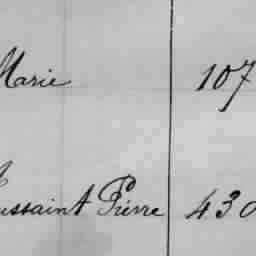 Marie 107
Toussaint Pierre 430